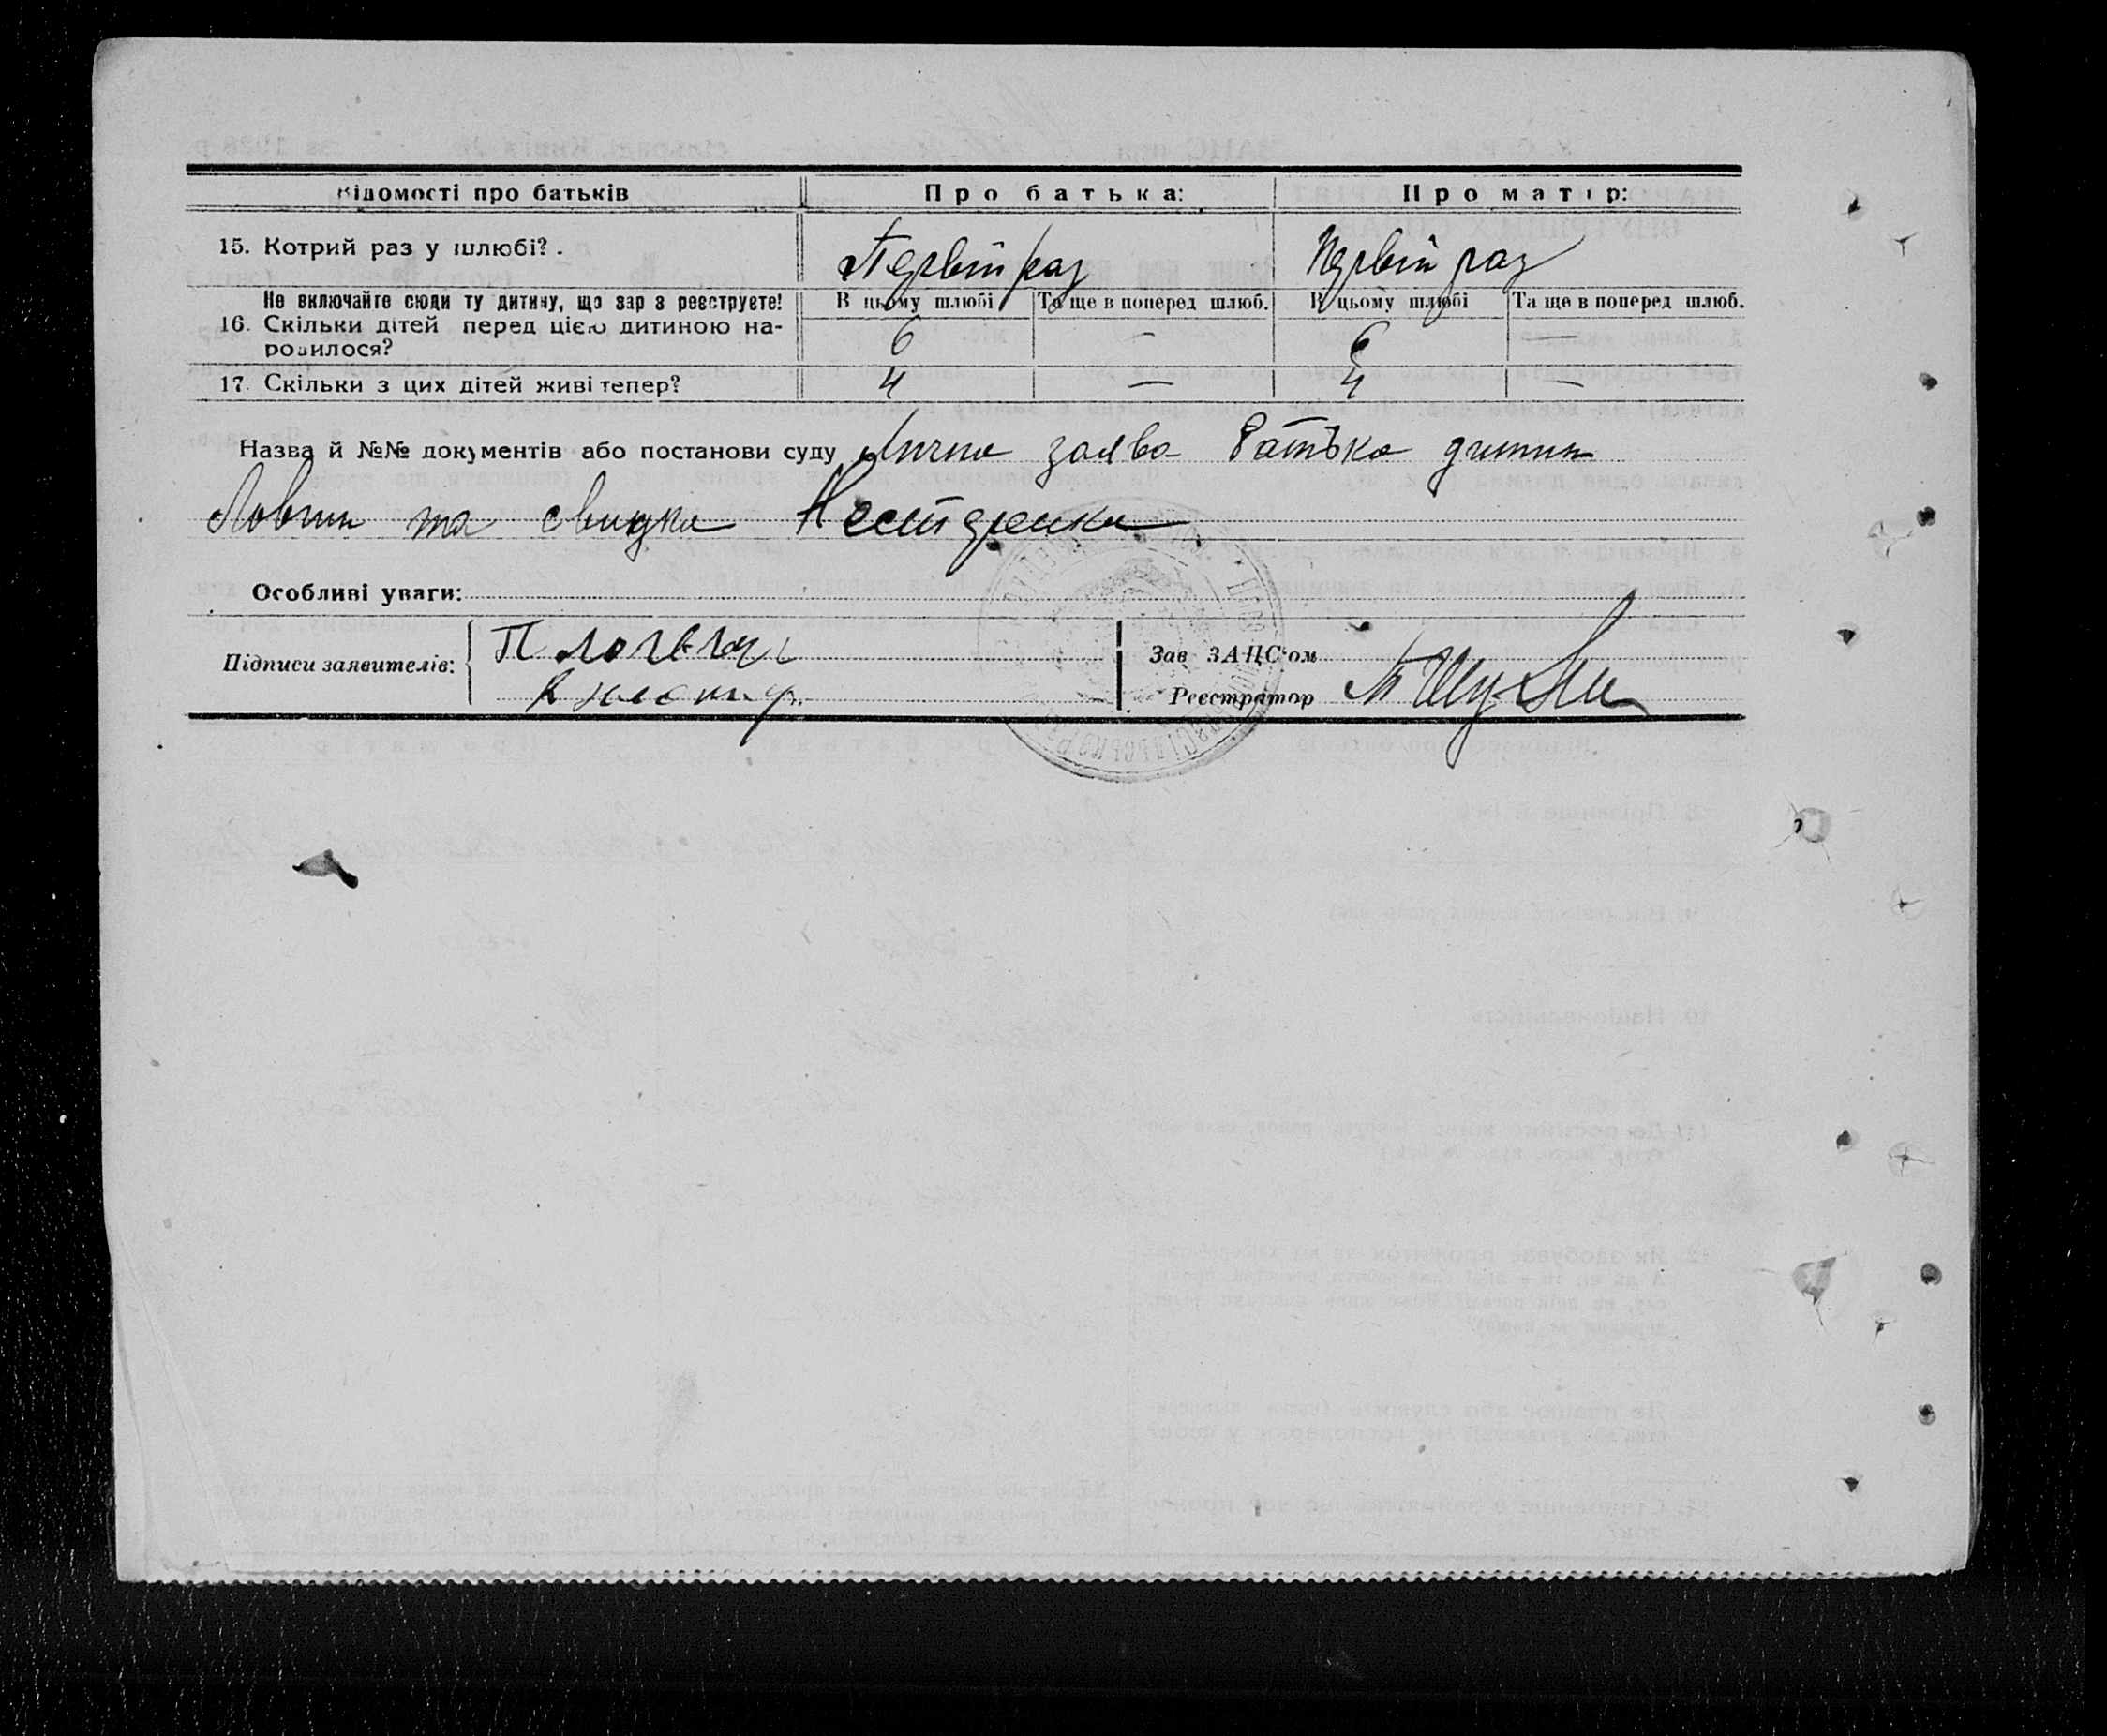 Відомості про батьків Про батька: Про матір:
15. Котрий раз у шлюбі?. Первій раз Первій раз
Не включайте сюди ту дитину, що зараз реєструєте! В цьому шлюбі Та ще в поперед шлюб. В цьому шлюбі Та ще в поперед шлюб.
16. Скільки дітей перед цією дитиною на-
родилося? 6 — 6 —
17. Скільки з цих дітей живі тепер? 4 — 4 —
Назва й №№ документів або постанови суду Лична заява батька дитини
та свидка Нестеренка
Особливі уваги:
Підписи заявителів:
Зав ЗАЦС'ом
Реєстратор